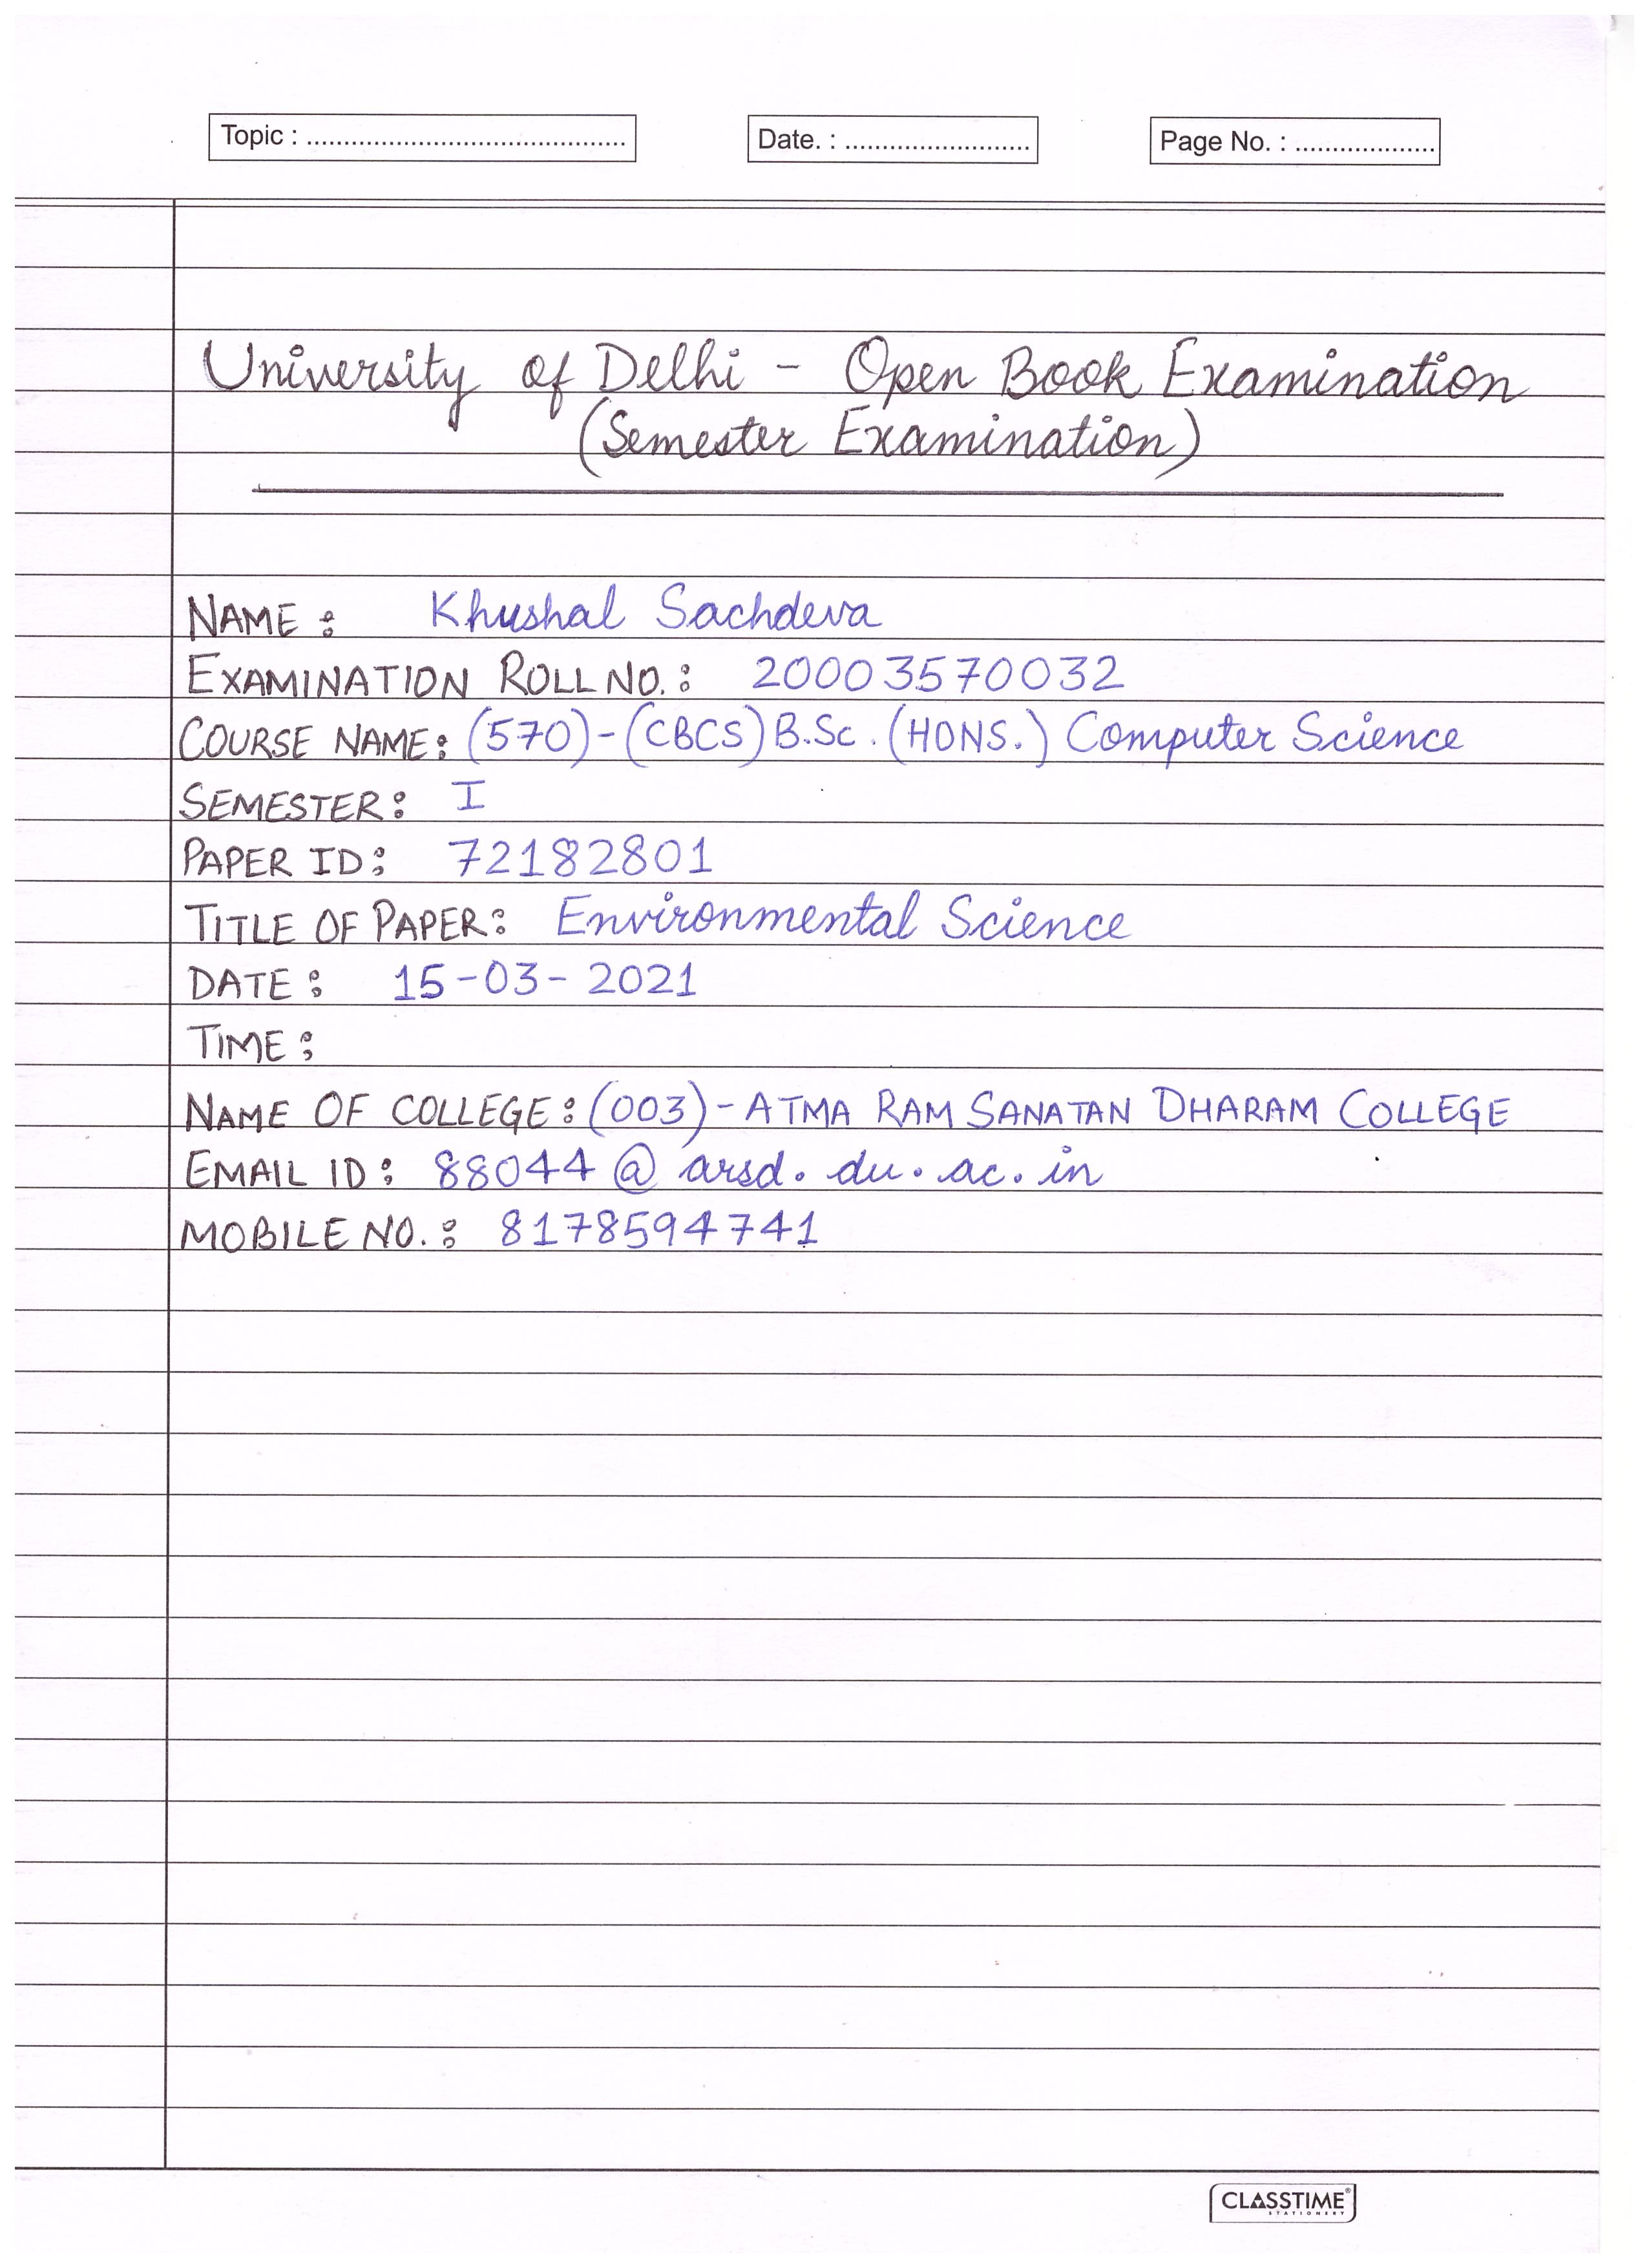 Topic : ...........................................
Date. : .........................
Page No. : ...................
University of Delhi - Open Book Examination
(Semester Examination)
NAME : Khushal Sachdeva
EXAMINATION ROLL NO. : 20003570032
COURSE NAME: (570)-(CBCS) B.Sc. (HONS.) Computer Science
SEMESTER: I
PAPER ID: 72182801
TITLE OF PAPER: Environmental Science
DATE : 15-03-2021
TIME :
NAME OF COLLEGE : (003)-ATMA RAM SANATAN DHARAM COLLEGE
EMAIL ID : 88044@arsd.du.ac.in
MOBILE NO. : 8178594741
CLASSTIME®
STATIONERY